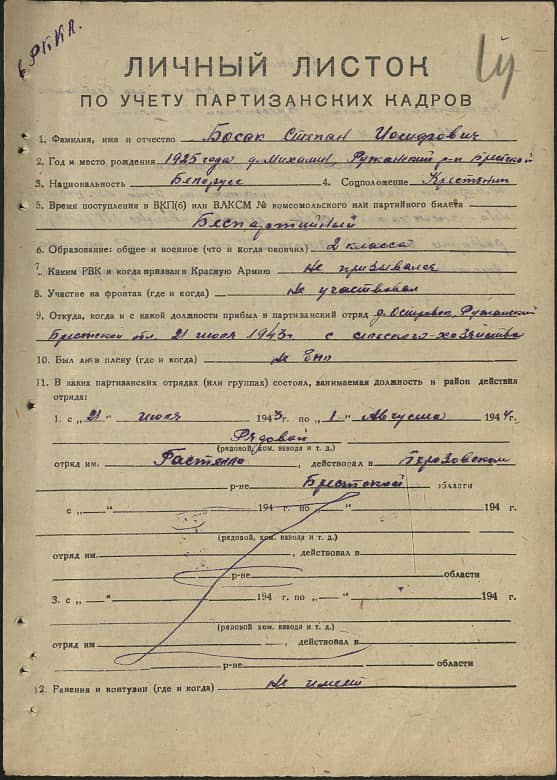 в РККА.
14
ЛИЧНЫЙ ЛИСТОК
ПО УЧЕТУ ПАРТИЗАНСКИХ КАДРОВ
1. Фамилия, имя и отчество Босак Степан Иосифович
2. Год и место рождения 1925 года д. Михалин, Ружанский р-н Брестской
3. Национальность Белорусс 4. Соцположение Крестьянин
5. Время поступления в ВКП(б) или ВЛКСМ № комсомольского или партийного билета
Беспартийный
6. Образование: общее и военное (что и когда окончил) 2 класса
7. Каким РВК и когда призван в Красную Армию Не призывался
8. Участие на фронтах (где и когда) Не участвовал
9. Откуда, когда и с какой должности прибыл в партизанский отряд д. Островок, Ружанский
Брестской обл. 21 июля 1943г с сельского-хозяйства
10. Был ли в плену (где и когда) не был
11. В каких партизанских отрядах (или группах) состоял, занимаемая должность и район действия
отряда:
1. с „21" июля 1943г. по „1" Августа 1944г.
Рядовой
(рядовой, ком. взвода и т. д.)
отряд им. Гастелло, действовал в Берозовском
р-не Брестской области
с „ " 194 г. по „ " 194 г.
(рядовой, ком. взвода и т. д.)
отряд им. , действовал в
р-не области
3. с „ " 194 г. по „ " 194 г.
(рядовой, ком. взвода и т. д.)
отряд им , действовал в
р-не области
12. Ранения и контузии (где и когда) Не имеет